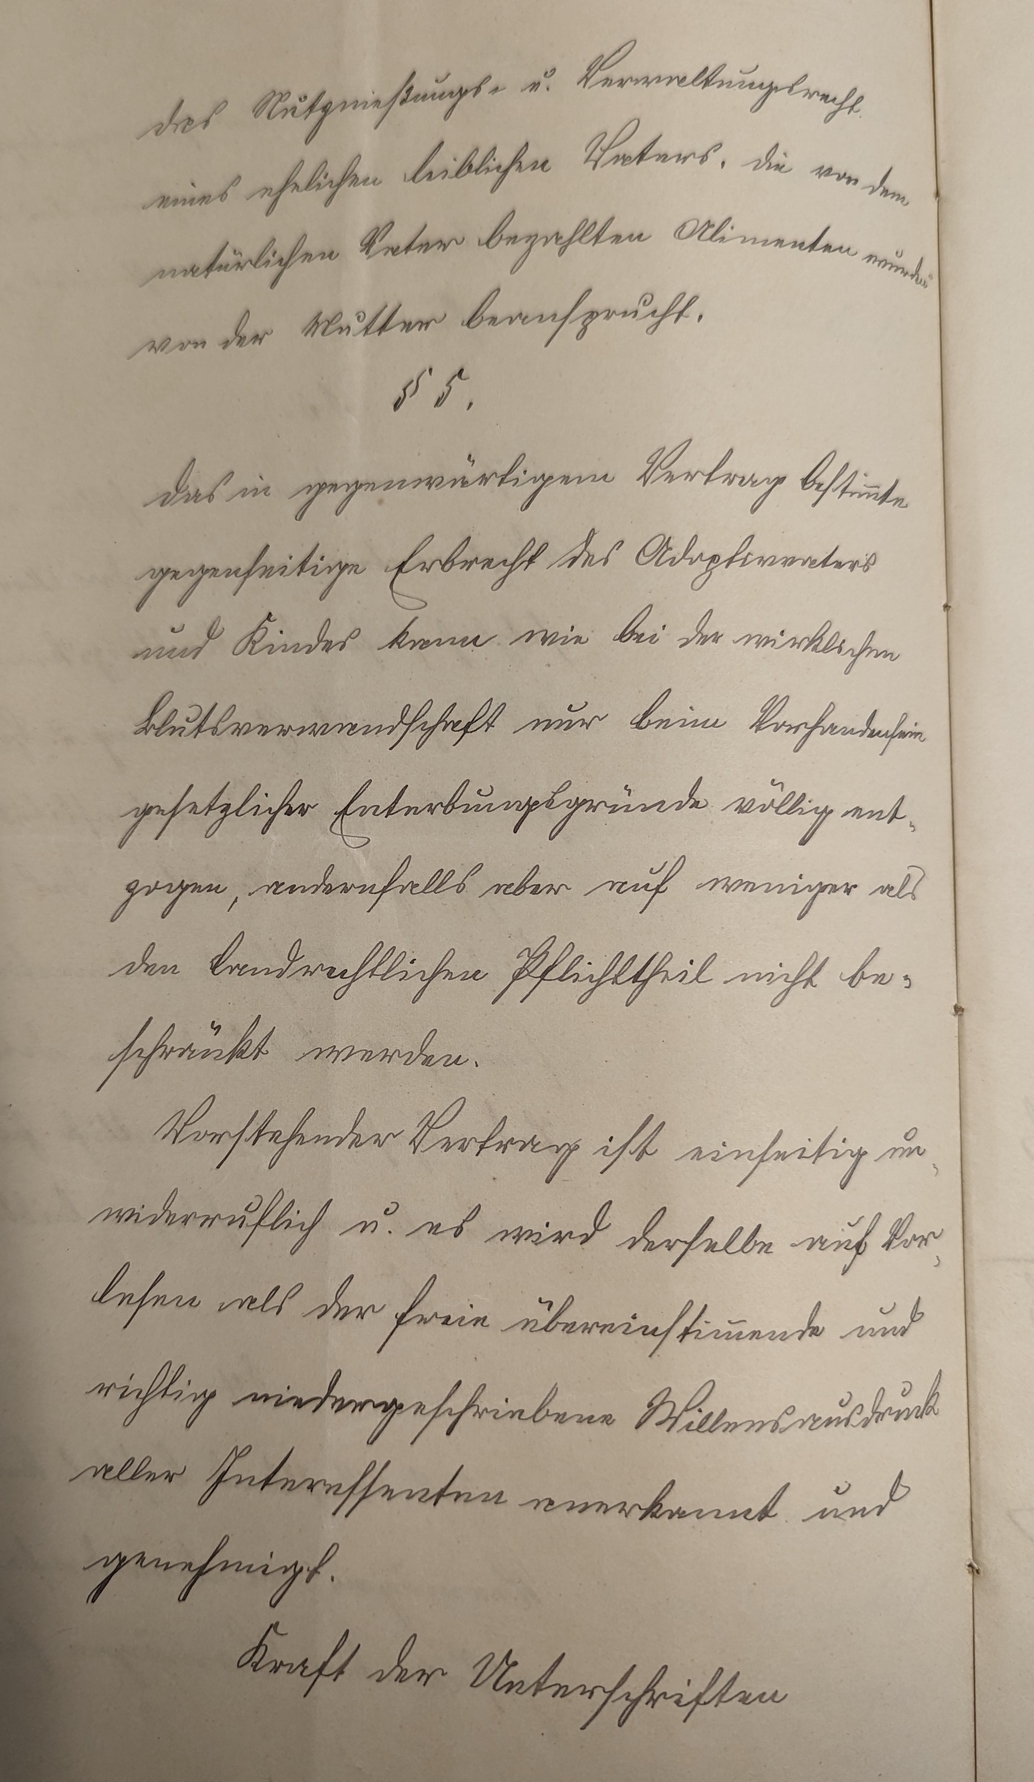 das Nutznießungs- u. Verwaltungsrecht
eines ehelichen leiblichen Vaters. die von dem
natürlichen Vater bezahlten Alimenten wurden
von der Mutter beansprucht.
§ 5.
das in gegenwärtigem Vertrag bestim̅te
gegenseitige Erbrecht des Adoptivvaters
und Kindes kann wie bei der wirklichen
Blutsverwandschaft nur beim Vorhandensein
gesetzlicher Enterbungsgründe völlig ent-
zogen, andernfalls aber auf weniger als
den landrechtlichen Pflichttheil nicht be-
schränkt werden.
Vorstehender Vertrag ist einseitig un-
widerruflich u. es wird derselbe auf Vor-
lesen als der freie übereinstim̅ende und
richtig niedergeschriebene Willensausdruck
aller Interessenten anerkannt und
genehmigt.
Kraft der Unterschriften